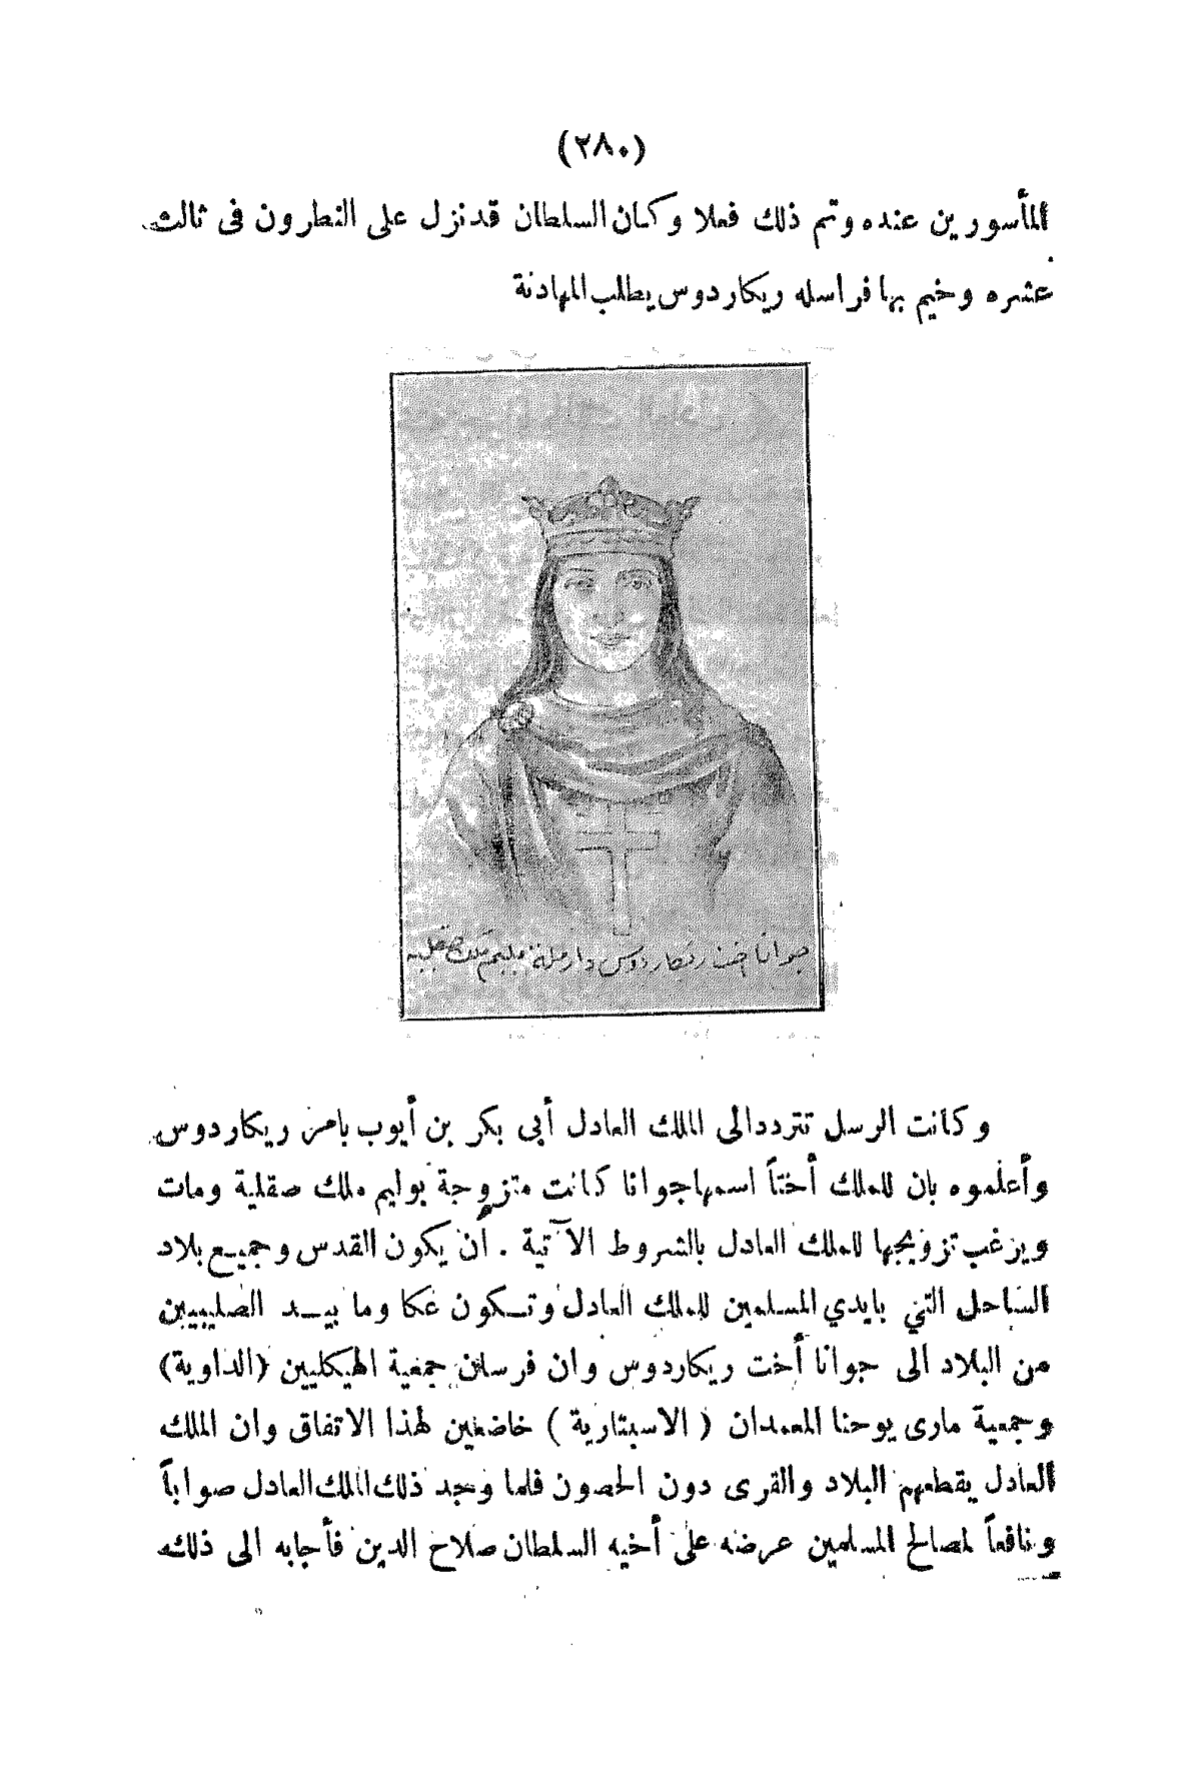 (٢٨٠)
المأسورين عنده وتم ذلك فعلا وكان السلطان قد نزل على النطرون فى ثالث
عشره وخيم بها فراسله ريكاردوس يطلب المهادنة
جوانا اخت ريكاردوس وارملة وليم ملك صقلية
وكانت الرسل تتردد الى الملك العادل أبى بكر بن أيوب بامر ريكاردوس
وأعلموه بان للملك أختاً اسمها جوانا كانت متزوجة بوليم ملك صقلية ومات
ويرغب تزويجها للملك العادل بالشروط الآتية . أن يكون القدس وجميع بلاد
الساحل التي بايدي المسلمين للملك العادل وتكون عكا وما بيد الصليبيين
من البلاد الى جوانا أخت ريكاردوس وان فرسان جمعية الهيكليين (الداوية)
وجمعية مارى يوحنا المعمدان ( الاسبتارية ) خاضعين لهذا الاتفاق وان الملك
العادل يقطعهم البلاد والقرى دون الحصون فلما وجد ذلك الملك العادل صواباً
ونافعاً لمصالح المسلمين عرضه على أخيه السلطان صلاح الدين فأجابه الى ذلك